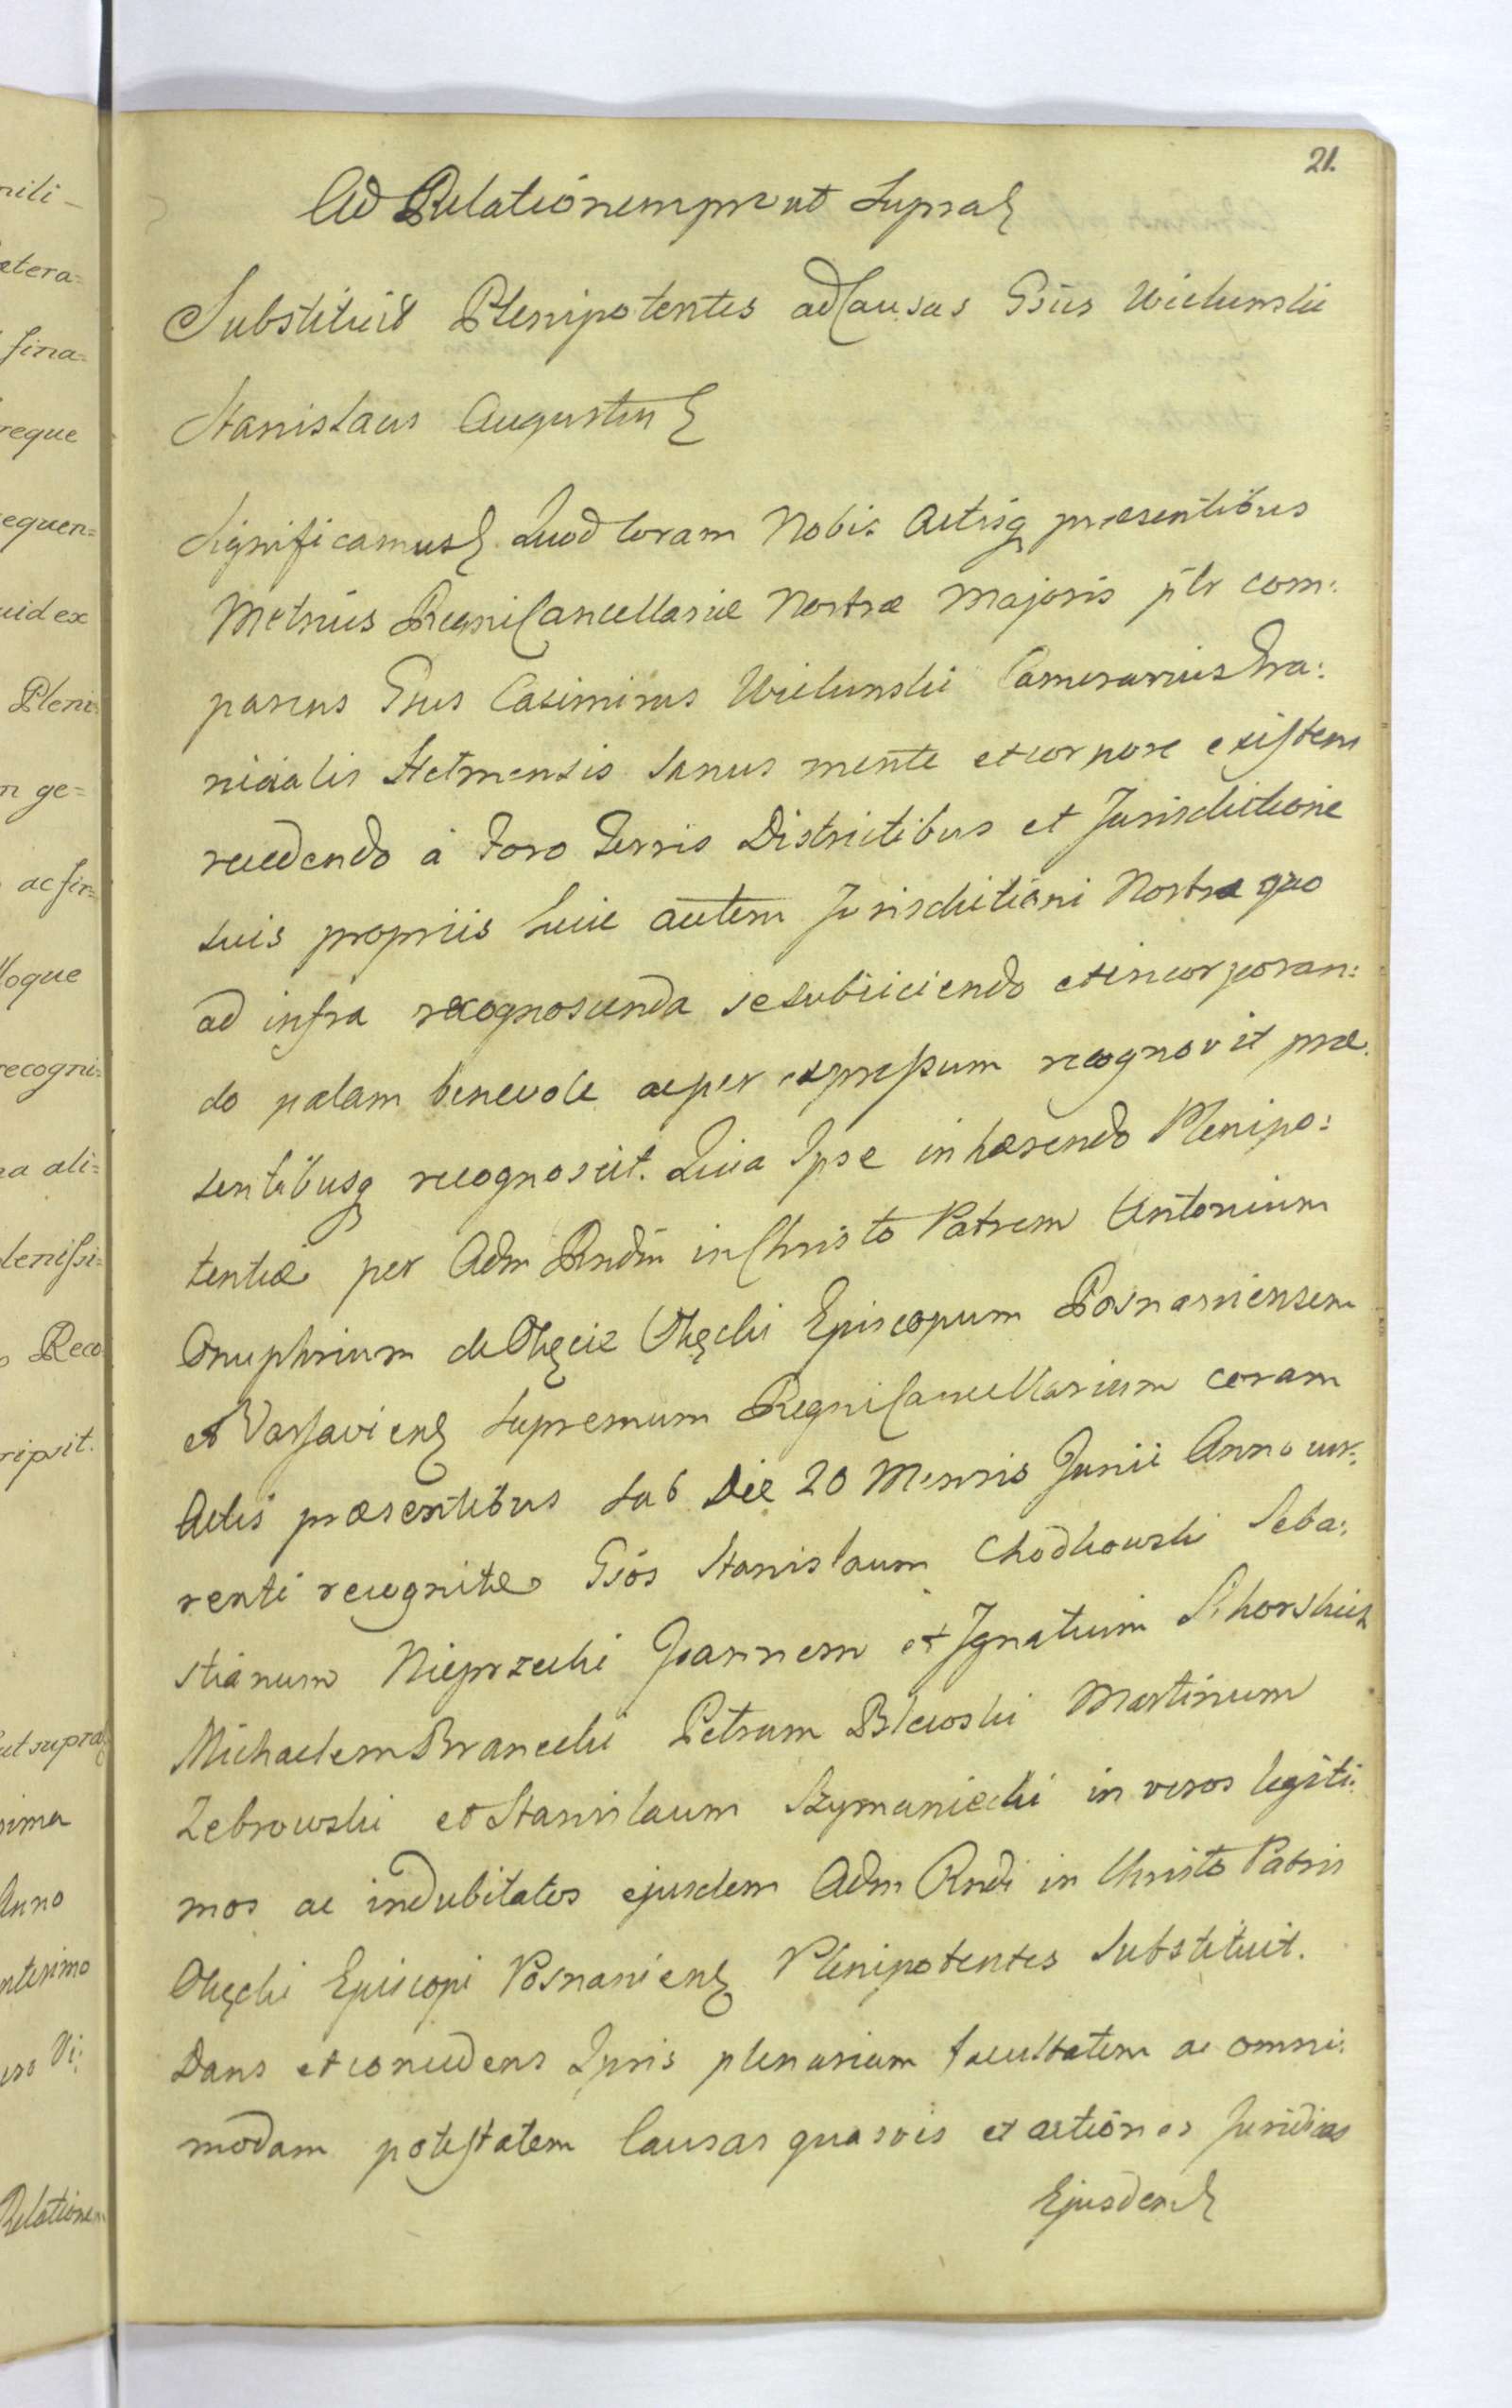 21.
Ad Relationem prout Supra
Substituit Plenipotentes ad Causas Gsus Wielunski
Stanislaus Augustus
Significamus Quod Coram Nobis Actisq praesentibus
Metrices Regni Cancellariae Nostrae Majoris plr com:
parens Gsus Casimirus Wielunski Camerarius Gra:
nicialis Stetmensis Sanus mente et corpore existens
recedendo à Foro Terris Districtibus et Jurisdictione
suis propriis huic autem Jurisdictioni Nostrae quo
ad infra recognoscenda se subiiciendo et incorporan:
do palam benevole ac per expressum recognovit prae
sentibusq recognoscit. Quia Ipse inhaerendo Plenipo:
tentiae per Adm Rndm in Christo Patrem Antonium
Onuphrium de Okęcie Okęcki Episcopum Posnaniensem
et Varsaviens Supremum Regni Cancellarium coram
Actis praesentibus sub Die 20 Mensis Junii Anno cur:
renti recognitae Gsos Stanislaum Chodkowski Seba:
stianum Nieprzecki Joannem et Ignatium Sikorskich
Michaelem Branecki Petrum Blewski Martinum
Zebrowski et Stanislaum Szymaniecki in veros legiti:
mos ac indubitatos ejusdem Adm Rndi in Christo Patris
Okęcki Episcopi Posnaniens Plenipotentes Substituit.
Dans et concedens Ipsis plenariam facultatem ac omni:
modam potestatem Causas quasvis et actiones Juridicas
Ejusdem